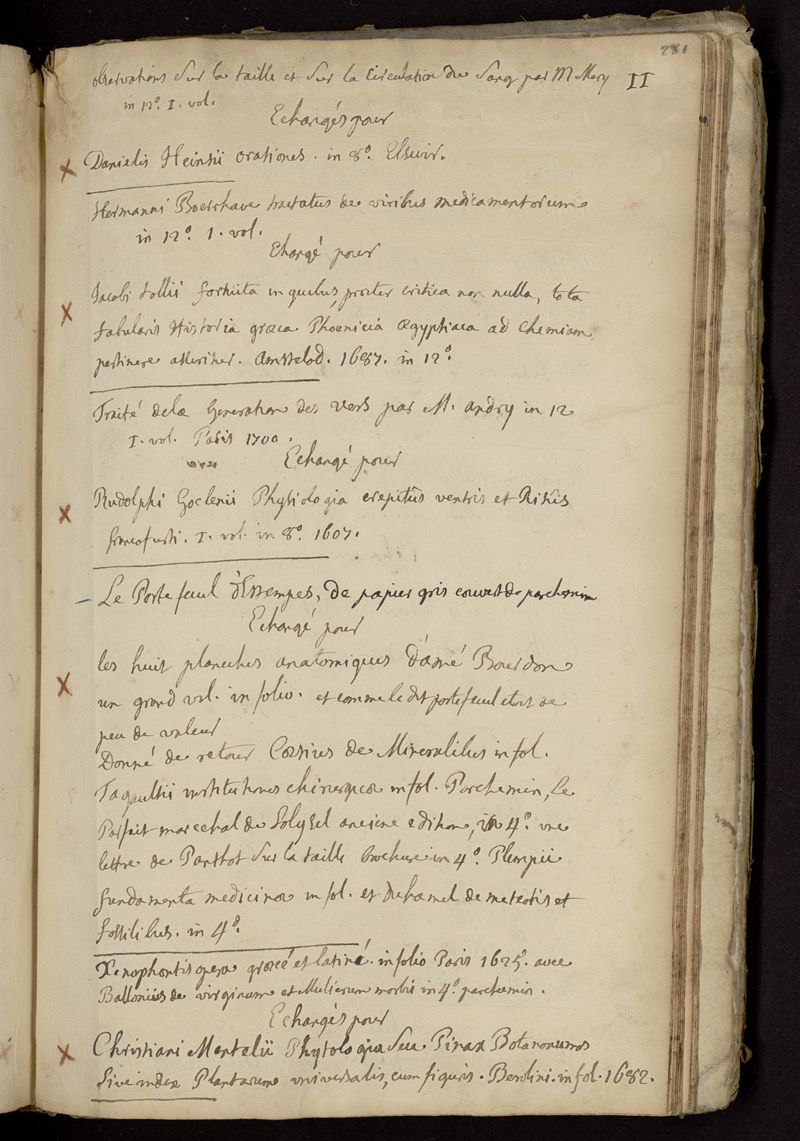 281
II
observations Sur la taille et Sur la Circulation du Sang par M Mery
in 12°. I. vol.
Echangés pour
Danielis Heinsii orationes. in 8°. Elsevir.
Hermanni Boerrhave tractatus de viribus medicamentorum
in 12°. 1. vol.
Echangé pour
Jacobi tollii fortuita in quibus proeter critica non nulla, tota
fabularis Historia groeca Phoenicia oegyptiaca ad Chemiam
pertinere asseritur. Amstelod. 1687. in 12°.
Traité dela Generation des vers par M. andry in 12
I. vol. Paris 1700.
Echangé pour
Rudolphi Goclenii Physiologia crepitus ventris et Risus
francofurti. I. vol. in 8°. 1607.
Le Porte feuil d'Estempes, de papier gris couvert de parchemin
Echangé pour
les huit planches anatomiques D'amé Bourdon
un grand vol. in folio. et comme le dit portefeuil etoit de
peu de valeur
Donné de retour Coesius de Mineralibus in fol.
Tagaultii institutiones chirurgicoe in fol. Parchemin, Le
Parfait marechal de Solysel anciene edition, in 4°. une
lettre de Panthot Sur la taille brochure in 4°. Plempii
fundamenta medicinoe in fol. et Duhamel de meteoris et
fossilibus. in 4°.
Xenophontis opera groecé et latiné. in folio Paris 1625. avec
Ballonius de virginum et Mulierum morbis in 4°. parchemin.
Echangés pour
Christiani Mentelii Phytologia Seu Pinax Botanonumos
Sive index Plantarum universalis, cum figuris. Berolini. in fol. 1682.